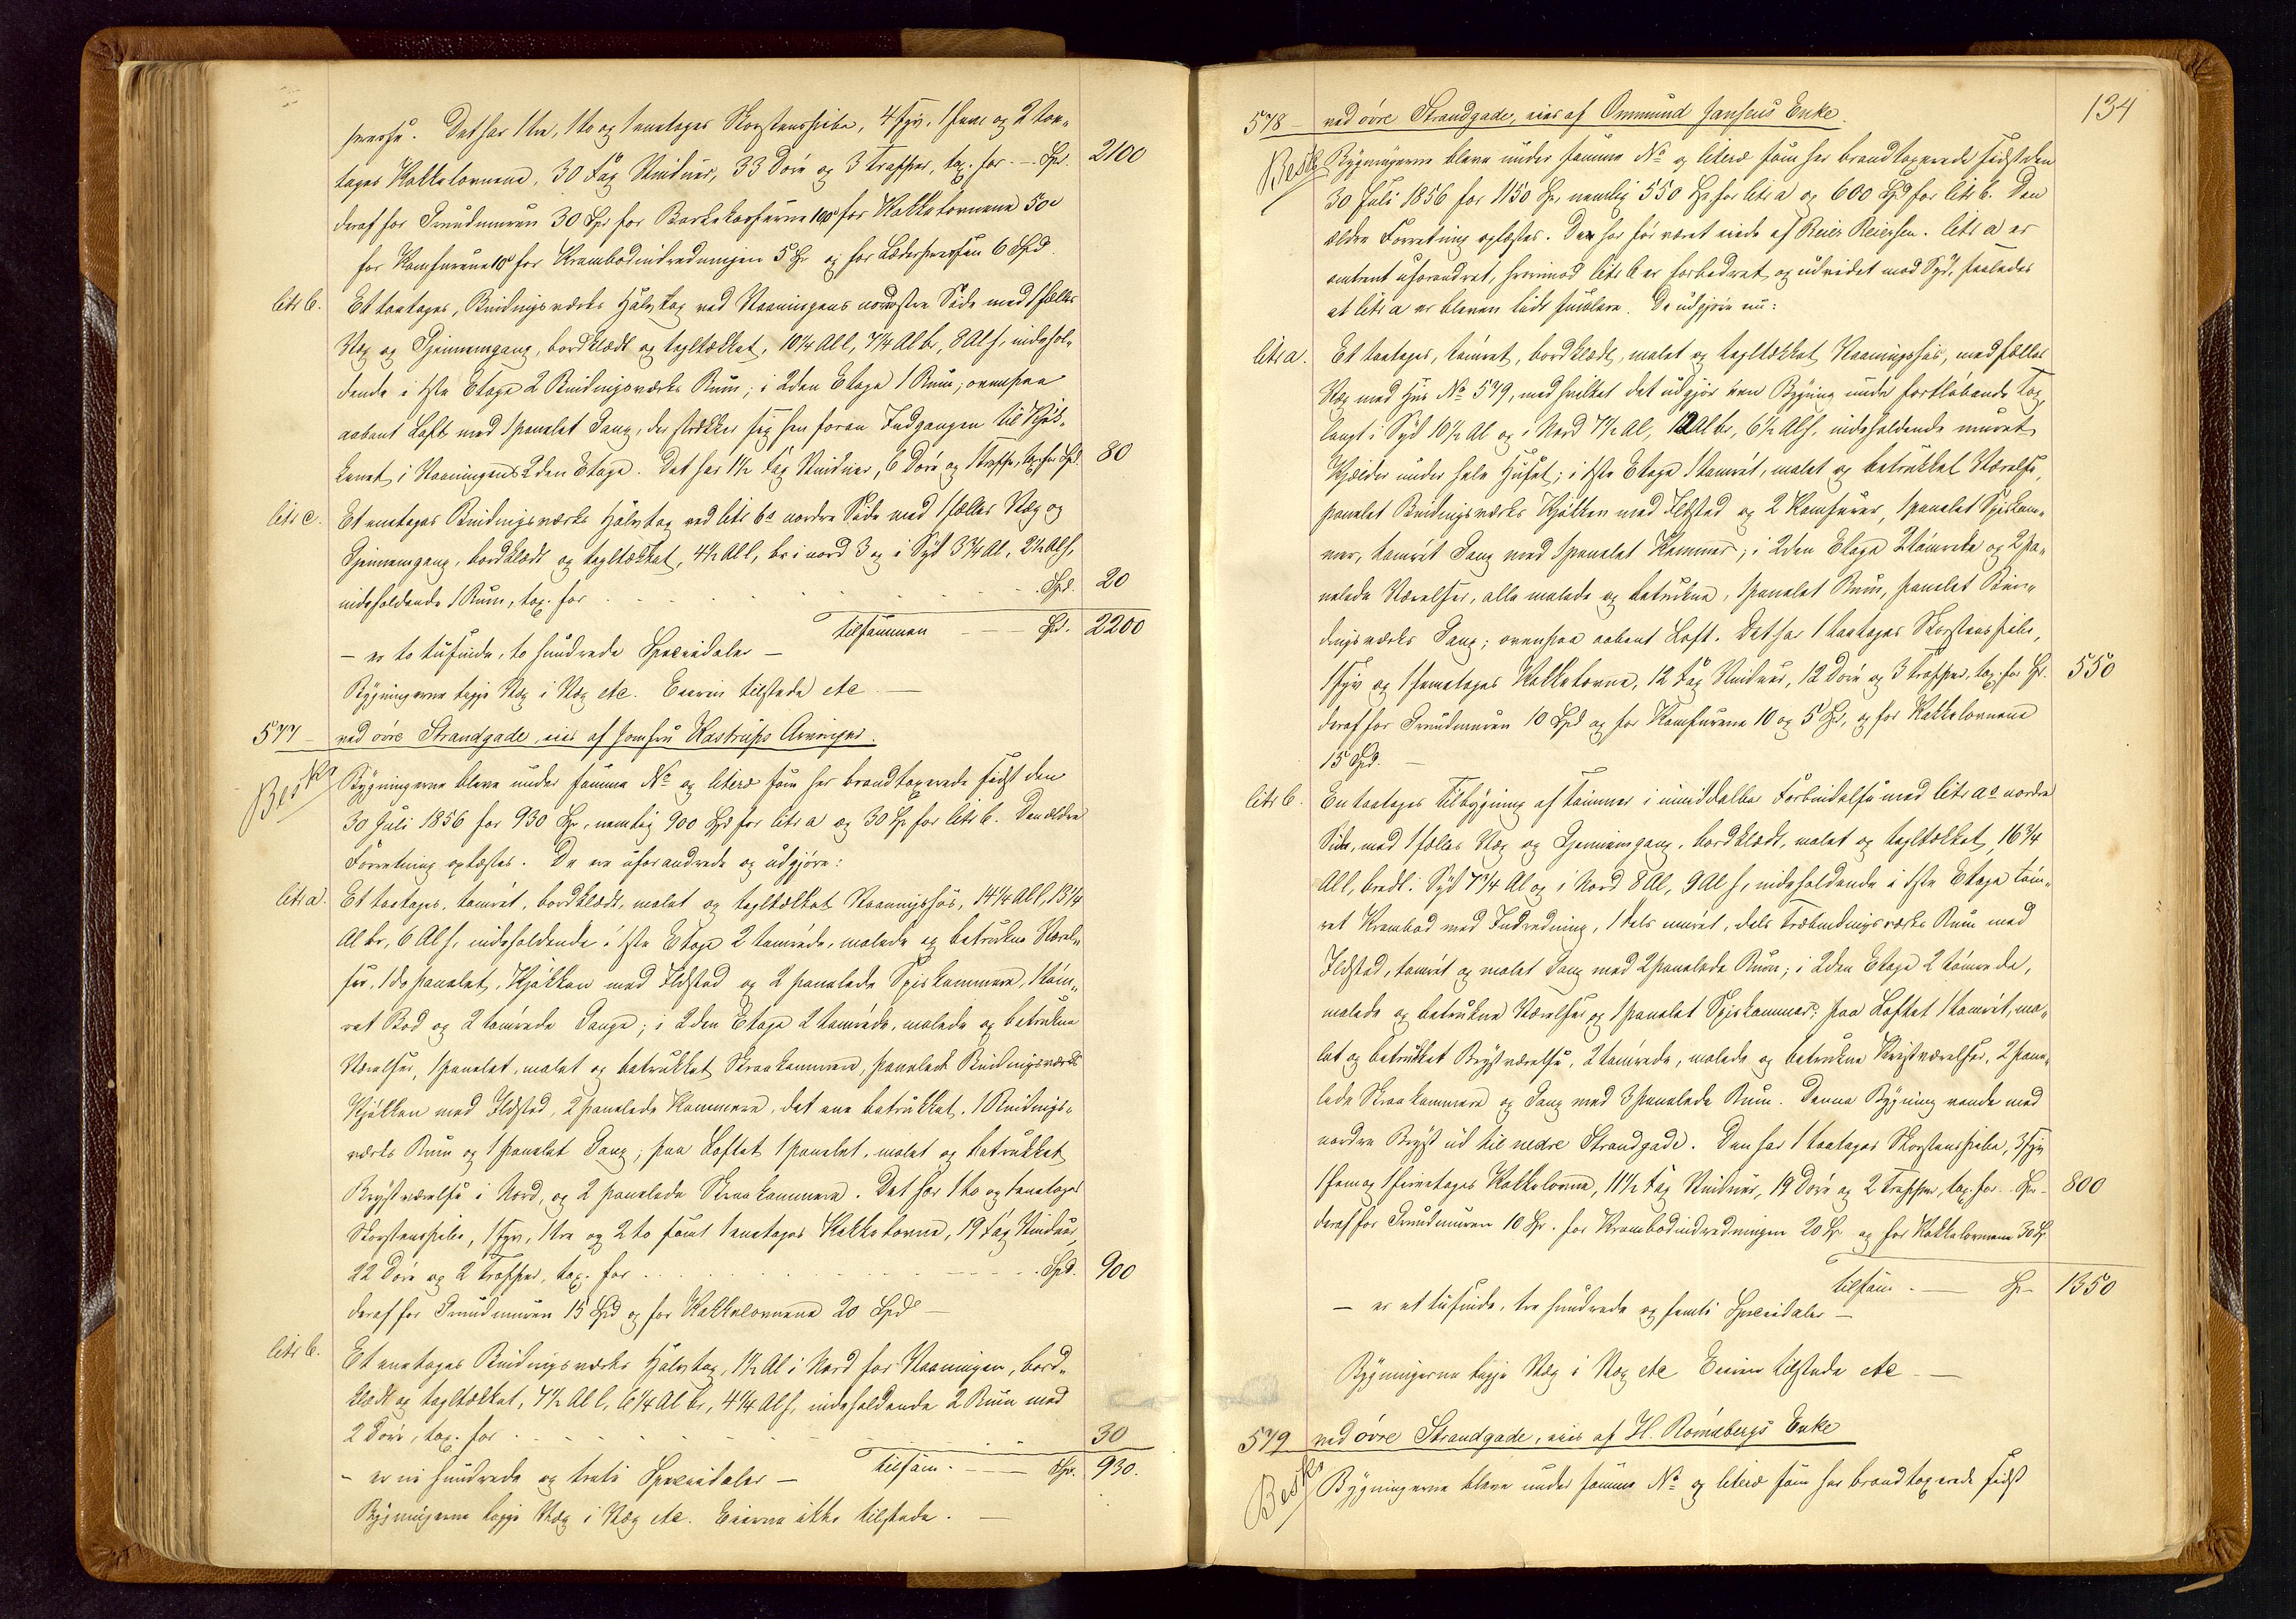 presse. Det har 1 tre, 1 to og 1 enetages Skorstenspibe, 4 Fyr, 1 fem og 2 toe-
tages Kakkelovnene, 30 Fag Vinduer, 33 Döre og 3 Trapper, tax. for - Spd. 2100
deraf for Grundmuren 30 Spd for 100 for Kakkelovnene 50
for Komfurene 10 for Krambodindredningen 5 Sp og for 6 Spd.
litr b. Et toetages, Bindingsværks Halvtag ved Vaaningens nordöstre Side med 1 fælles
Væg og Gjennemgang, bordklædt og tegltækket, 10¼ Al l, 7¼ Al br, 8 Al h, indehol-
dende i 1ste Etage 2 Bindingsværks Rum; i 2den Etage 1 Rum; ovenpaa
aabent Loft med 1 panelet Gang, der strækker sig hen foran Indgangen til Kjök-
kenet i Vaaningens 2den Etage. Det har 1½ Fag Vinduer, 6 Döre og 1 Trappe, tax. for Spd. 80
litr c. Et enetages Bindingsværks Halvtag ved litr bs nordre Side med 1 fælles Væg og
Gjennemgang, bordklædt og tegltækket, 4½ Al l, br i nord 3 og i Syd 3¾ Al, 2½ Al h,
indeholdende 1 Rum, tax. for Spd. 20
Tilsammen Spd. 2200
- er to tusinde, to hundrede Speciedaler -
Bygningerne ligge Væg i Væg etc. Eieren tilstede etc -
577 - ved övre Strandgade, eies af Jomfru Kastrups Arvinger.
Besk. Bygningerne bleve under samme No og litera som her brandtaxerede sidst den
30 Juli 1856 for 930 Sp, nemlig 900 Spd for litr a og 30 Sp for litr b. Den ældre
Forretning oplæstes. De ere uforandrede og udgjöre:
litr a. Et toetages, tömret, bordklædt, malet og tegltækket Vaaningshus, 14¼ Al l, 13¼
Al br, 6 Al h, indeholdende i 1ste Etage 2 tömrede, malede og betrukne Værel-
ser, 1 do panelet, Kjökken med Ildsted og 2 panelede Spiskammere, 1 töm-
ret Bod og 2 tömrede Gange; i 2den Etage 2 tömrede, malede og betrukne
Værelser, 1 panelet, malet og betrukket Skraakammer, panelet Bindingsværks
Kjökken med Ildsted, 2 panelede Kammere, det ene betrukket, 1 Bindings-
værks Rum og 1 panelet Gang; paa Loftet 1 panelet, malet og betrukket
Brystværelse i Nord, og 2 panelede Skraakammere. Det har 1 to og 1 enetages
Skorstenspibe, 1 Fyr, 1 tre og 2 to samt 1 enetages Kakkelovne, 19 Fag Vinduer,
22 Döre og 2 Trapper, tax. for Spd. 900
deraf for Grundmuren 15 Spd og for Kakkelovnene 20 Spd -
litr b. Et enetages Bindingsværks Halvtag, 1½ Al i Nord for Vaaningen, bord-
klædt og tegltækket, 7½ Al l, 6¼ Al br, 4¼ Al h, indeholdende 2 Rum med
2 Döre, tax. for 30
tilsam. Spd. 930.
- er ni hundrede og treti Speciedaler -
Bygningerne ligge Væg i Væg etc. Eierne ikke tilstede. -
134
578 - ved övre Strandgade, eies af Ommund Hansens Enke.
Besk. Bygningerne bleve under samme No og litera som her brandtaxerede sidst den
30 Juli 1856 for 1150 Sp, nemlig 550 Sp for litr a og 600 Spd for litr b. Den
ældre Forretning oplæstes. Den har för været eiede af Reier Reiersen. litr a er
omtrent uforandret, hvorimod litr b er forbedret og udvidet mod Syd, saaledes
at litr a er bleven lidt smalere. De udgjöre nu:
litr a. Et toetages, tömret, bordklædt, malet og tegltækket Vaaningshus, med fælles
Væg med Hus No 579, med hvilket det udgjör een Bygning under fortlöbende Tag,
langt i Syd 10½ Al og i Nord 7½ Al, 12 Al br, 6½ Al h, indeholdende muret
Kjælder under hele Huset; i 1ste Etage 1 tömret, malet og betrukket Værelse,
panelet Bindingsværks Kjökken med Ildsted og 2 Komfurer, 1 panelet Spiskam-
mer, tömret Gang med 1 panelet Kammer; i 2den Etage 2 tömrede og 2 pa-
nelede Værelser, alle malede og betrukne, 1 panelet Rum, panelet Bin-
dingsværks Gang; ovenpaa aabent Loft. Det har 1 toetages Skorstenspibe,
1 Fyr og 1 femetages Kakkelovne, 12 Fag Vinduer, 12 Döre og 3 Trapper, tax. for Sp. 550
deraf for Grundmuren 10 Spd og for Komfurene 10 og 5 Sp, og for Kakkelovnene
15 Spd. -
litr b. En toetages Tilbygning af Tömmer i umiddelbar Forbindelse med litr as nordre
Side, med 1 fælles Væg og Gjennemgang, bordklædt, malet og tegltækket, 16¾
Al l, bredt i Syd 7¾ Al og i Nord 8 Al, 9 Al h, indeholdende i 1ste Etage töm-
ret Krambod med Indredning, 1 dels muret, dels Træbindingsværks Rum med
Ildsted, tömret og malet Gang med 2 panelede Rum; i 2den Etage 2 tömrede,
malede og betrukne Værelser og 1 panelet Spiskammer; paa Loftet 1 tömret, ma-
let og betrukket Brystværelse, 2 tömrede, malede og betrukne Kvistværelser, 2 pane-
lede Skraakammere og Gang med 3 panelede Rum. Denne Bygning vender med
nordre Bryst ud til nedre Strandgade. Den har 1 toetages Skorstenspibe, 3 Fyr
1 fem og 1 firetages Kakkelovne, 11½ Fag Vinduer, 19 Döre og 2 Trapper, tax. for Sp - 800
deraf for Grundmuren 10 Sp. for Krambodindredningen 20 Sp og for Kakkelovnene 30 Sp.
tilsam. - Sp - 1350
- er et tusinde, tre hundrede og femti Speciedaler -
Bygningerne ligge Væg i Væg etc Eieren tilstede etc -
579 ved övre Strandgade, eies af H. Römebergs Enke
Besk. Bygningerne bleve under samme No og litera som her brandtaxerede sidst